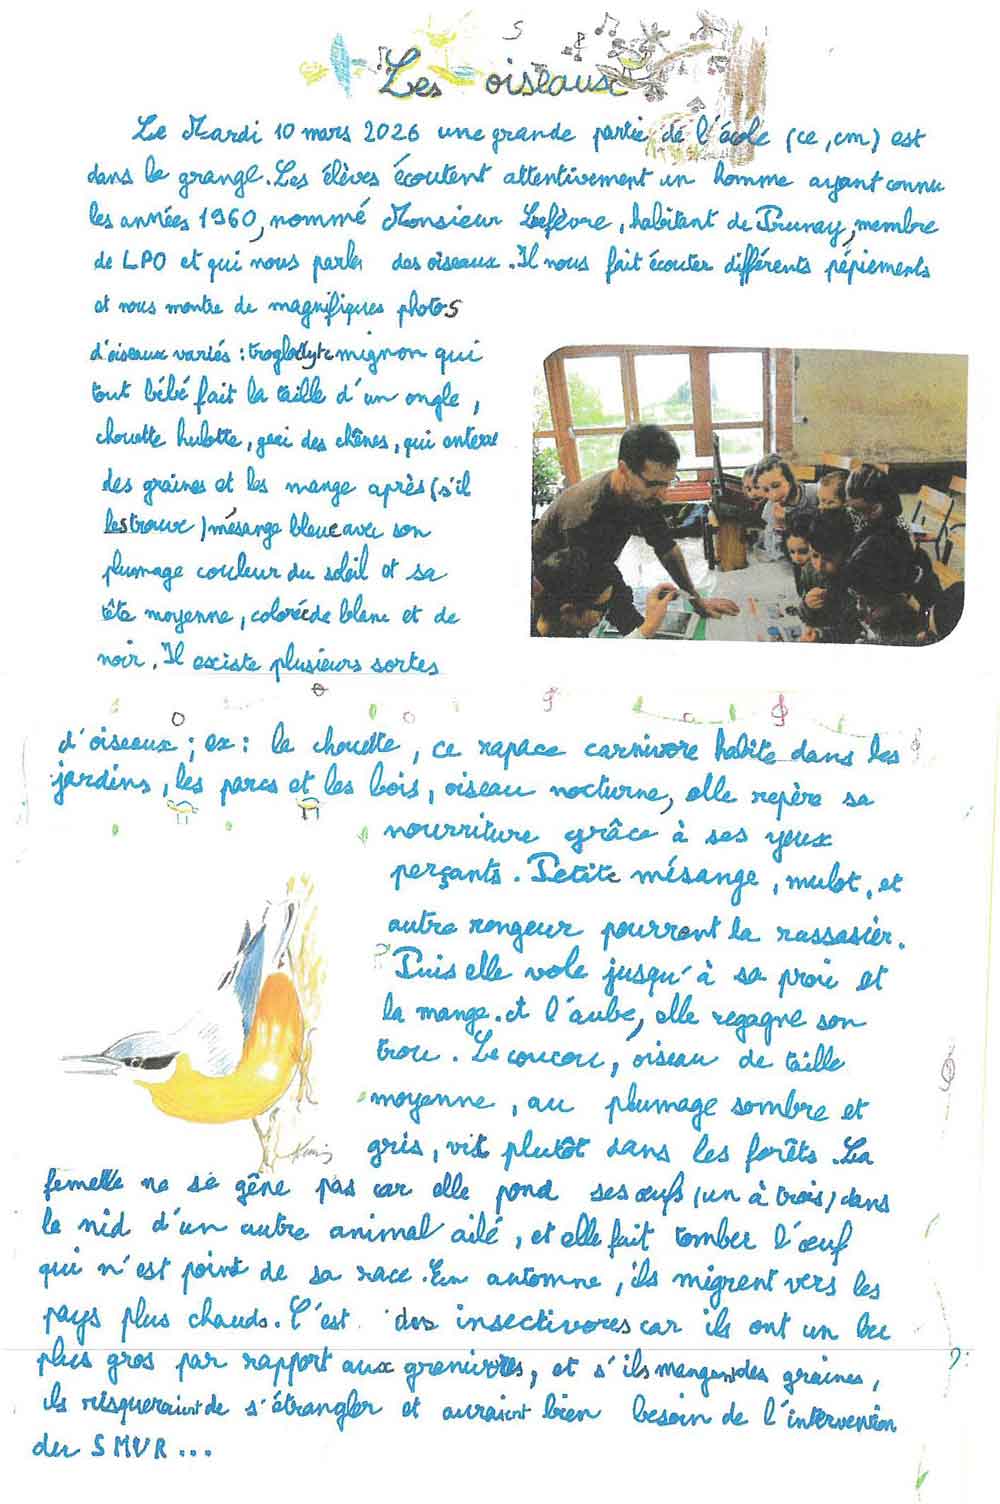 Les oiseaux
Le Mardi 10 mars 2026 une grande partie de l'école (ce, cm) est
dans la grange. Les élèves écoutent attentivement un homme ayant connu
les années 1960, nommé Monsieur Lefèvre, habitant de Prunay, membre
de LPO et qui nous parle des oiseaux. Il nous fait écouter différents pépiements
et nous montre de magnifiques photos
d'oiseaux variés : troglodyte mignon qui
tout bébé fait la taille d'un ongle,
chouette hulotte, geai des chênes, qui enterre
des graines et les mange après (s'il
les trouve) mésange bleue avec son
plumage couleur du soleil et sa
tête moyenne, colorée de blanc et de
noir. Il existe plusieurs sortes
d'oiseaux ; ex : la chouette, ce rapace carnivore habite dans les
jardins, les parcs et les bois, oiseau nocturne, elle repère sa
nourriture grâce à ses yeux
perçants. Petite mésange, mulot, et
autre rongeur pourront la rassasier.
Puis elle vole jusqu'à sa proie et
la mange. et l'aube, elle regagne son
trou. Le coucou, oiseau de taille
moyenne, au plumage sombre et
gris, vit plutôt dans les forêts. La
femelle ne se gêne pas car elle pond ses œufs (un à trois) dans
le nid d'un autre animal ailé, et elle fait tomber l'œuf
qui n'est point de sa race. En automne, ils migrent vers les
pays plus chauds. C'est des insectivores car ils ont un bec
plus gros par rapport aux granivores, et s'ils mangent des graines,
ils risqueraient de s'étrangler et auraient bien besoin de l'intervention
du SMUR...